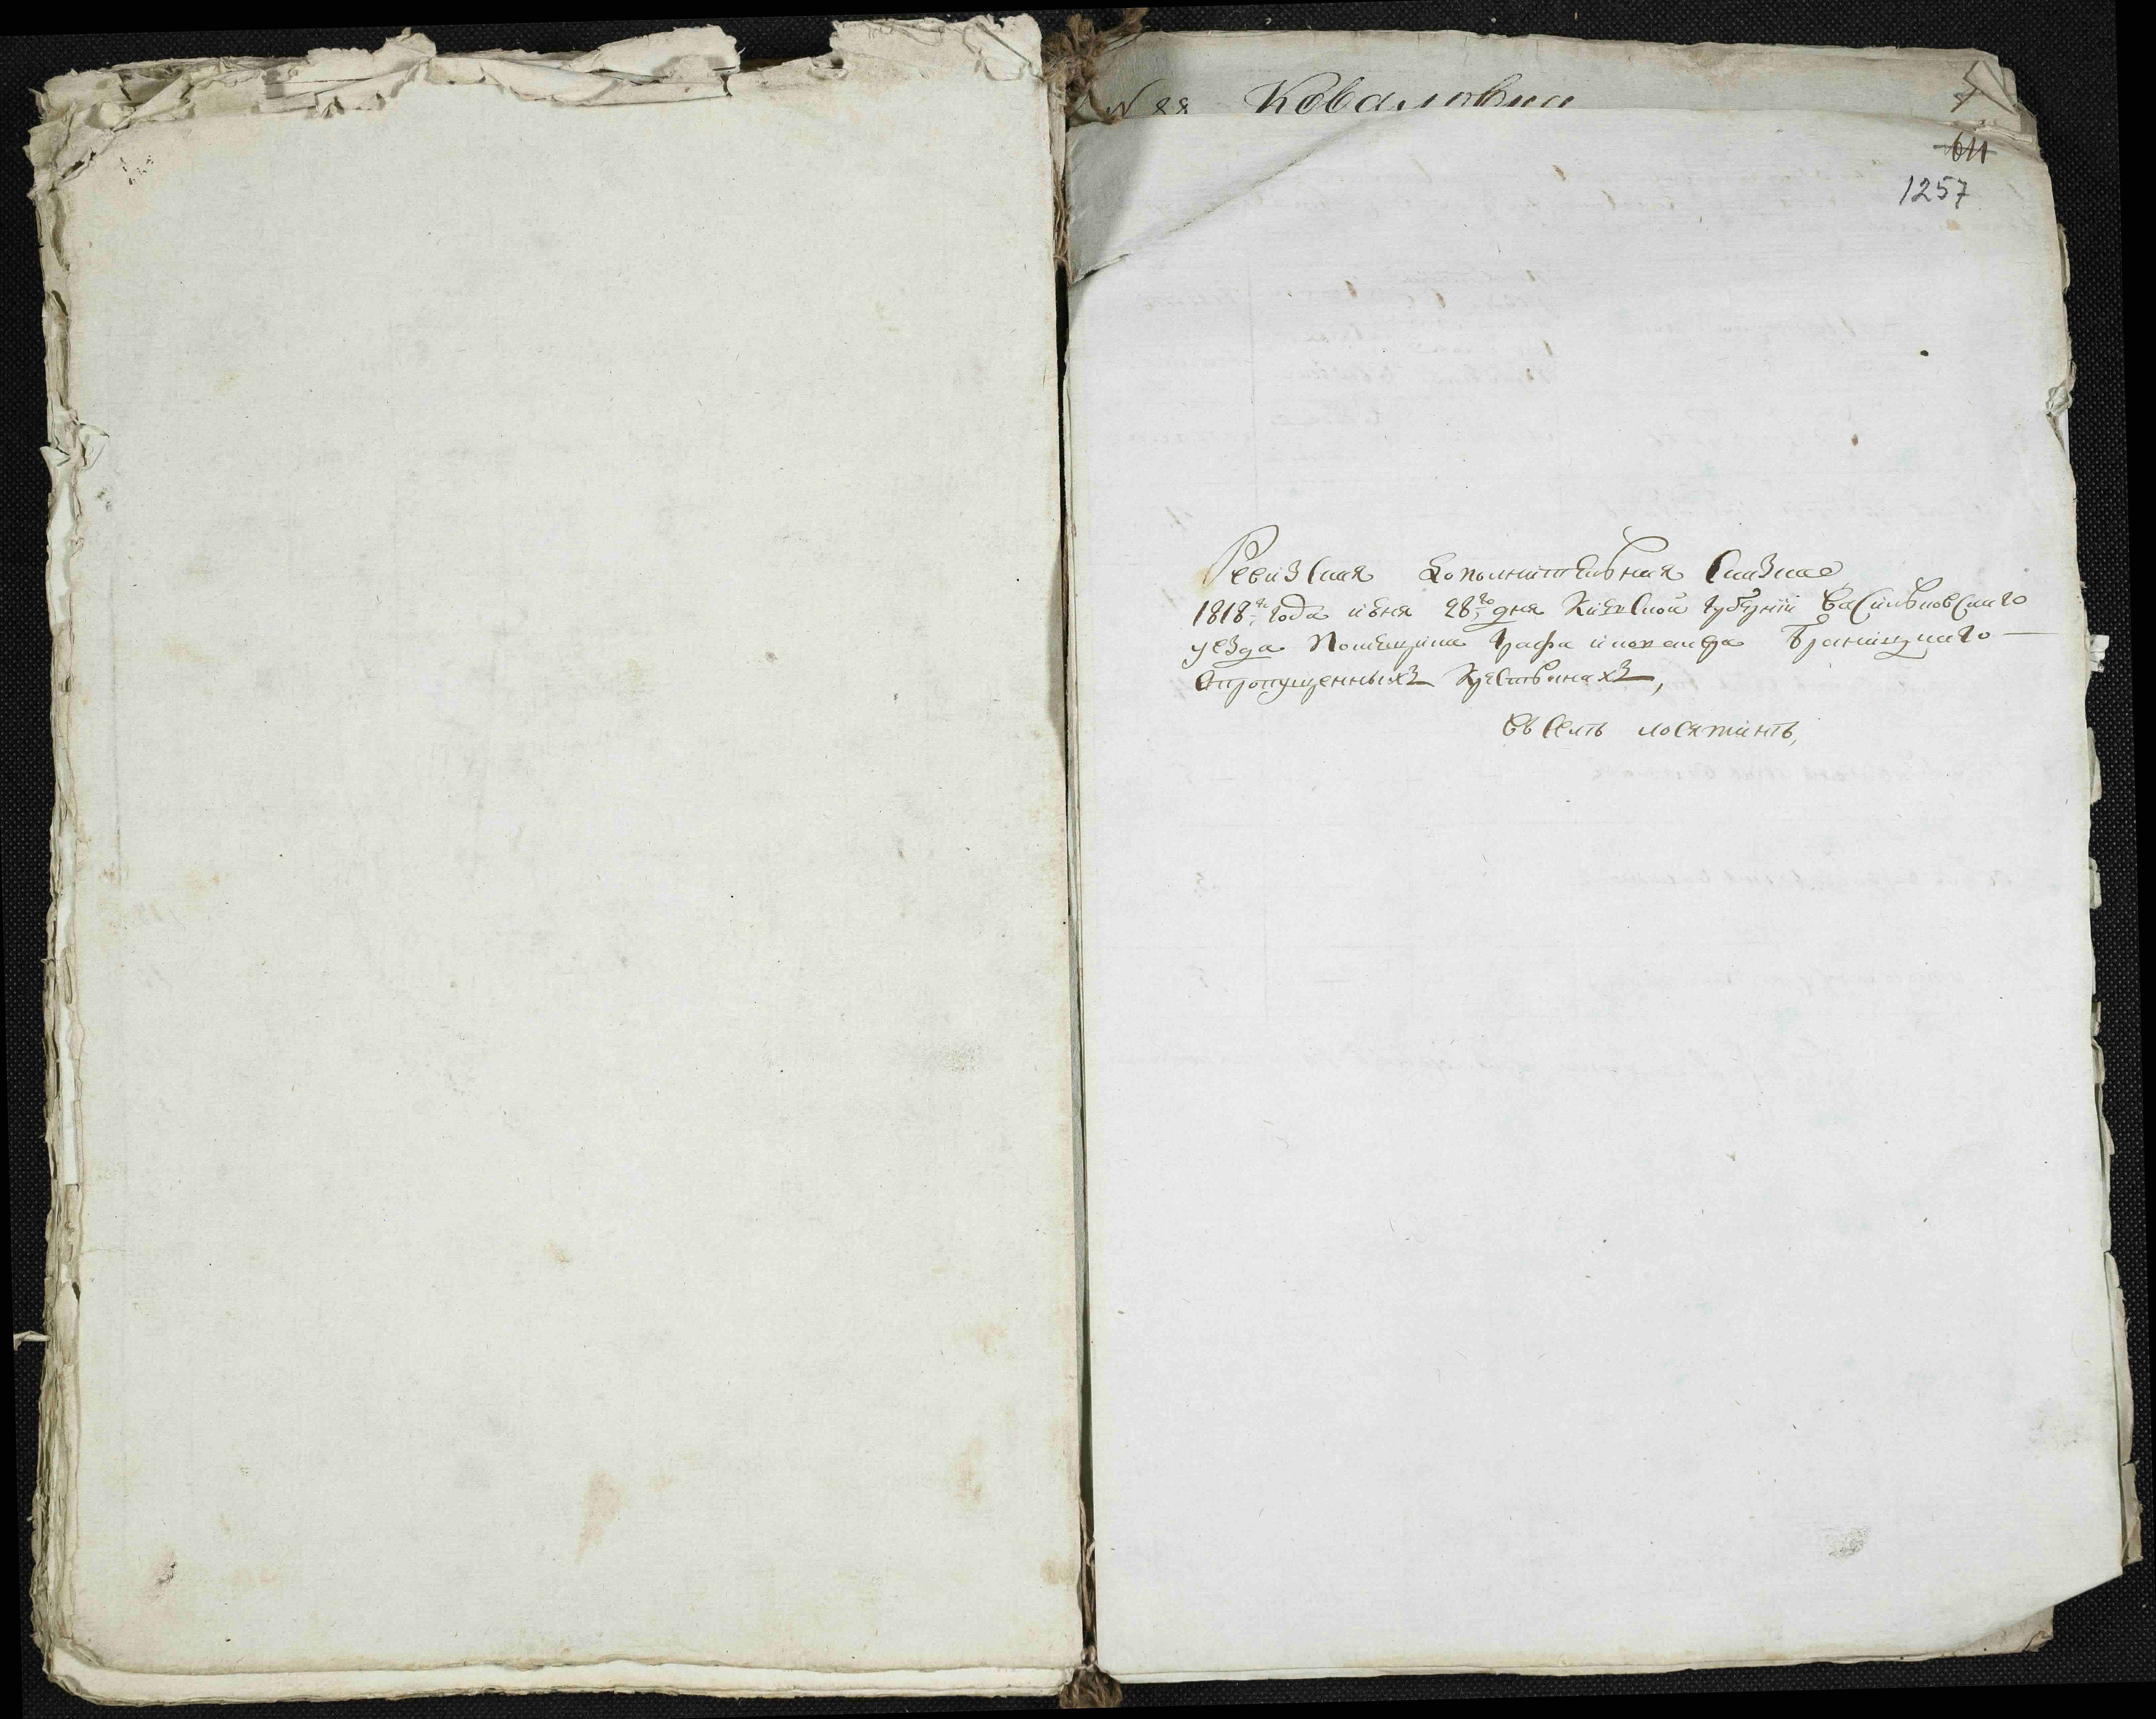 N 88 Ковалювки
611
1257
Ревизская дополнительная сказка
1818го года июня 28го дня Киевской губернии Васильковскаго
уезда Помещика графа Браницкаго —
о пропущенныхъ крестьянахъ,
въ селѣ лосятинѣ,